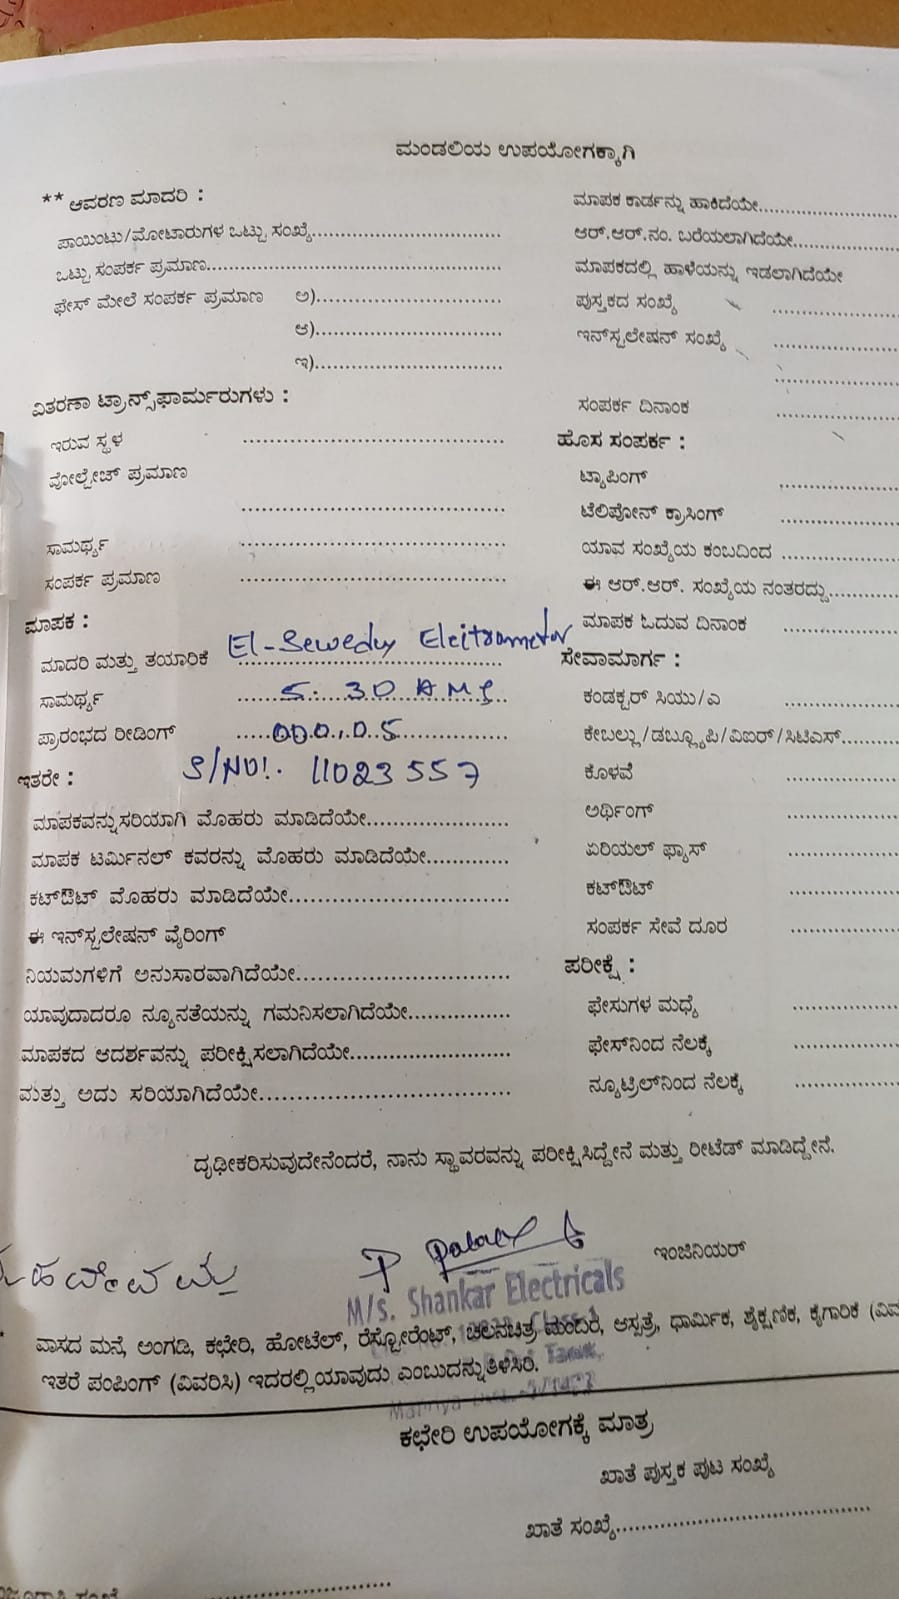 ಮಂಡಲಿಯ ಉಪಯೋಗಕ್ಕಾಗಿ
** ಆವರಣ ಮಾದರಿ :
ಪಾಯಿಂಟು/ಮೋಟಾರುಗಳ ಒಟ್ಟು ಸಂಖ್ಯೆ
ಒಟ್ಟು ಸಂಪರ್ಕ ಪ್ರಮಾಣ
ಫೇಸ್ ಮೇಲೆ ಸಂಪರ್ಕ ಪ್ರಮಾಣ ಅ)
ಆ)
ಇ)
ವಿತರಣಾ ಟ್ರಾನ್ಸ್‌ಫಾರ್ಮರುಗಳು :
ಇರುವ ಸ್ಥಳ
ವೋಲ್ಟೇಜ್ ಪ್ರಮಾಣ
ಸಾಮರ್ಥ್ಯ
ಸಂಪರ್ಕ ಪ್ರಮಾಣ
ಮಾಪಕ :
ಮಾದರಿ ಮತ್ತು ತಯಾರಿಕೆ El-Sewedy
ಸಾಮರ್ಥ್ಯ 5-30
ಪ್ರಾರಂಭದ ರೀಡಿಂಗ್
ಇತರೇ : S/NO:. 11023557
ಮಾಪಕವನ್ನು ಸರಿಯಾಗಿ ಮೊಹರು ಮಾಡಿದೆಯೇ
ಮಾಪಕ ಟರ್ಮಿನಲ್ ಕವರನ್ನು ಮೊಹರು ಮಾಡಿದೆಯೇ
ಕಟ್‌ಔಟ್ ಮೊಹರು ಮಾಡಿದೆಯೇ
ಈ ಇನ್‌ಸ್ಟಲೇಷನ್ ವೈರಿಂಗ್
ನಿಯಮಗಳಿಗೆ ಅನುಸಾರವಾಗಿದೆಯೇ
ಯಾವುದಾದರೂ ನ್ಯೂನತೆಯನ್ನು ಗಮನಿಸಲಾಗಿದೆಯೇ
ಮಾಪಕದ ಆದರ್ಶವನ್ನು ಪರೀಕ್ಷಿಸಲಾಗಿದೆಯೇ
ಮತ್ತು ಅದು ಸರಿಯಾಗಿದೆಯೇ
ಮಾಪಕ ಕಾರ್ಡನ್ನು ಹಾಕಿದೆಯೇ
ಆರ್.ಆರ್.ನಂ. ಬರೆಯಲಾಗಿದೆಯೇ
ಮಾಪಕದಲ್ಲಿ ಹಾಳೆಯನ್ನು ಇಡಲಾಗಿದೆಯೇ
ಪುಸ್ತಕದ ಸಂಖ್ಯೆ
ಇನ್‌ಸ್ಟಲೇಷನ್ ಸಂಖ್ಯೆ
ಸಂಪರ್ಕ ದಿನಾಂಕ
ಹೊಸ ಸಂಪರ್ಕ :
ಟ್ಯಾಪಿಂಗ್
ಟೆಲಿಪೋನ್ ಕ್ರಾಸಿಂಗ್
ಯಾವ ಸಂಖ್ಯೆಯ ಕಂಬದಿಂದ
ಈ ಆರ್.ಆರ್. ಸಂಖ್ಯೆಯ ನಂತರದ್ದು
ಮಾಪಕ ಓದುವ ದಿನಾಂಕ
ಸೇವಾಮಾರ್ಗ :
ಕಂಡಕ್ಟರ್ ಸಿಯು/ಎ
ಕೇಬಲ್ಲು/ಡಬ್ಲ್ಯೂಪಿ/ವಿಐರ್/ಸಿಟಿಎಸ್
ಕೊಳವೆ
ಅರ್ಥಿಂಗ್
ಏರಿಯಲ್ ಫ್ಯೂಸ್
ಕಟ್‌ಔಟ್
ಸಂಪರ್ಕ ಸೇವೆ ದೂರ
ಪರೀಕ್ಷೆ :
ಫೇಸುಗಳ ಮಧ್ಯೆ
ಫೇಸ್‌ನಿಂದ ನೆಲಕ್ಕೆ
ನ್ಯೂಟ್ರಲ್‌ನಿಂದ ನೆಲಕ್ಕೆ
ದೃಢೀಕರಿಸುವುದೇನೆಂದರೆ, ನಾನು ಸ್ಥಾವರವನ್ನು ಪರೀಕ್ಷಿಸಿದ್ದೇನೆ ಮತ್ತು ರೀಟೆಡ್ ಮಾಡಿದ್ದೇನೆ.
ಇಂಜಿನಿಯರ್
M/s. Shankar Electricals
ವಾಸದ ಮನೆ, ಅಂಗಡಿ, ಕಛೇರಿ, ಹೋಟೆಲ್, ರೆಸ್ಟೋರೆಂಟ್, ಚಲನಚಿತ್ರ ಮಂದಿರ, ಆಸ್ಪತ್ರೆ, ಧಾರ್ಮಿಕ, ಶೈಕ್ಷಣಿಕ, ಕೈಗಾರಿಕೆ
ಇತರೆ ಪಂಪಿಂಗ್ (ವಿವರಿಸಿ) ಇದರಲ್ಲಿ ಯಾವುದು ಎಂಬುದನ್ನು ತಿಳಿಸಿರಿ.
ಕಛೇರಿ ಉಪಯೋಗಕ್ಕೆ ಮಾತ್ರ
ಖಾತೆ ಪುಸ್ತಕ ಪುಟ ಸಂಖ್ಯೆ
ಖಾತೆ ಸಂಖ್ಯೆ